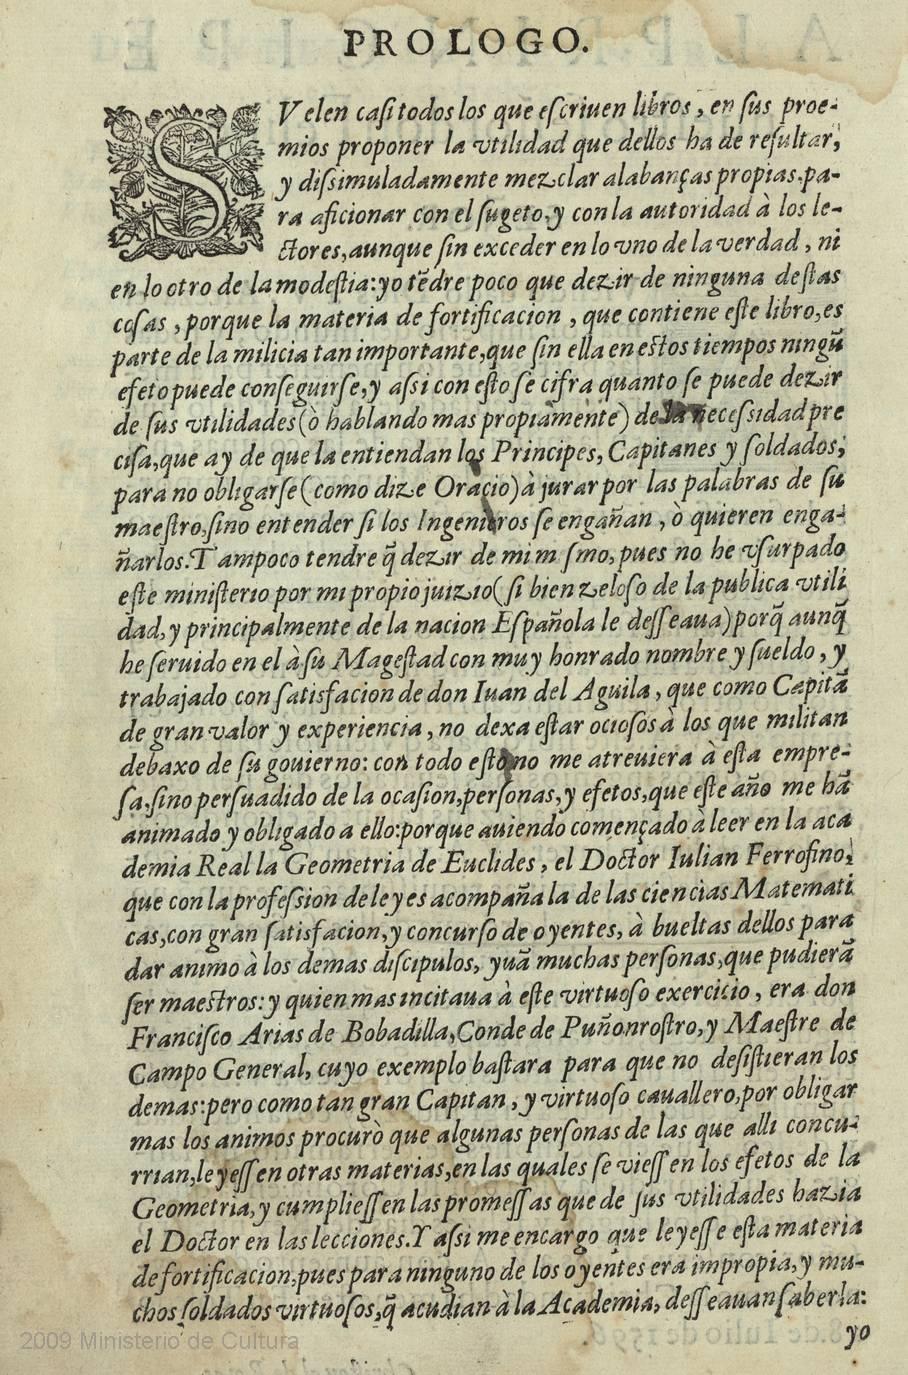 PROLOGO.
SVelen casi todos los que escriuen libros, en sus proe-
mios proponer la vtilidad que dellos ha de resultar,
y dissimuladamente mezclar alabanças propias, pa-
ra aficionar con el sugeto, y con la autoridad à los le-
ctores, aunque sin exceder en lo vno de la verdad, ni
en lo otro de la modestia: yo tẽdre poco que dezir de ninguna destas
cosas, porque la materia de fortificacion, que contiene este libro, es
parte de la milicia tan importante, que sin ella en estos tiempos ningũ
efeto puede conseguirse, y assi con esto se cifra quanto se puede dezir
de sus vtilidades (ò hablando mas propiamente) de la necessidad pre
cisa, que ay de que la entiendan los Principes, Capitanes y soldados;
para no obligarse (como dize Oracio) à jurar por las palabras de su
maestro, sino entender si los Ingenieros se engañan, ò quieren enga-
ñarlos. Tampoco tendre q̃ dezir de mi mismo, pues no he vsurpado
este ministerio por mi propio juizio (si bien zeloso de la publica vtili
dad, y principalmente de la nacion Española le desseaua) porq̃ aunq̃
he seruido en el à su Magestad con muy honrado nombre y sueldo, y
trabajado con satisfacion de don Iuan del Aguila, que como Capitã
de gran valor y experiencia, no dexa estar ociosos à los que militan
debaxo de su gouierno: con todo esto no me atreuiera à esta empre-
sa, sino persuadido de la ocasion, personas, y efetos, que este año me hã
animado y obligado a ello: porque auiendo començado à leer en la aca
demia Real la Geometria de Euclides, el Doctor Iulian Ferrofino,
que con la profession de leyes acompaña la de las ciencias Matemati
cas, con gran satisfacion, y concurso de oyentes, à bueltas dellos para
dar animo à los demas discipulos, yuã muchas personas, que pudierã
ser maestros: y quien mas incitaua à este virtuoso exercicio, era don
Francisco Arias de Bobadilla, Conde de Puñonrostro, y Maestre de
Campo General, cuyo exemplo bastara para que no desistieran los
demas: pero como tan gran Capitan, y virtuoso cauallero, por obligar
mas los animos procurò que algunas personas de las que alli concu-
rrian, leyessen otras materias, en las quales se viessen los efetos de la
Geometria, y cumpliessen las promessas que de sus vtilidades hazia
el Doctor en las lecciones. Y assi me encargo que leyesse esta materia
de fortificacion, pues para ninguno de los oyentes era impropia, y mu-
chos soldados virtuosos, q̃ acudian à la Academia, desseauan saberla:
yo
2009 Ministerio de Cultura